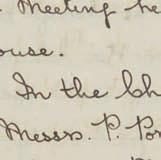 Meeting he
ouse.
In the Ch
Messrs. P. Por